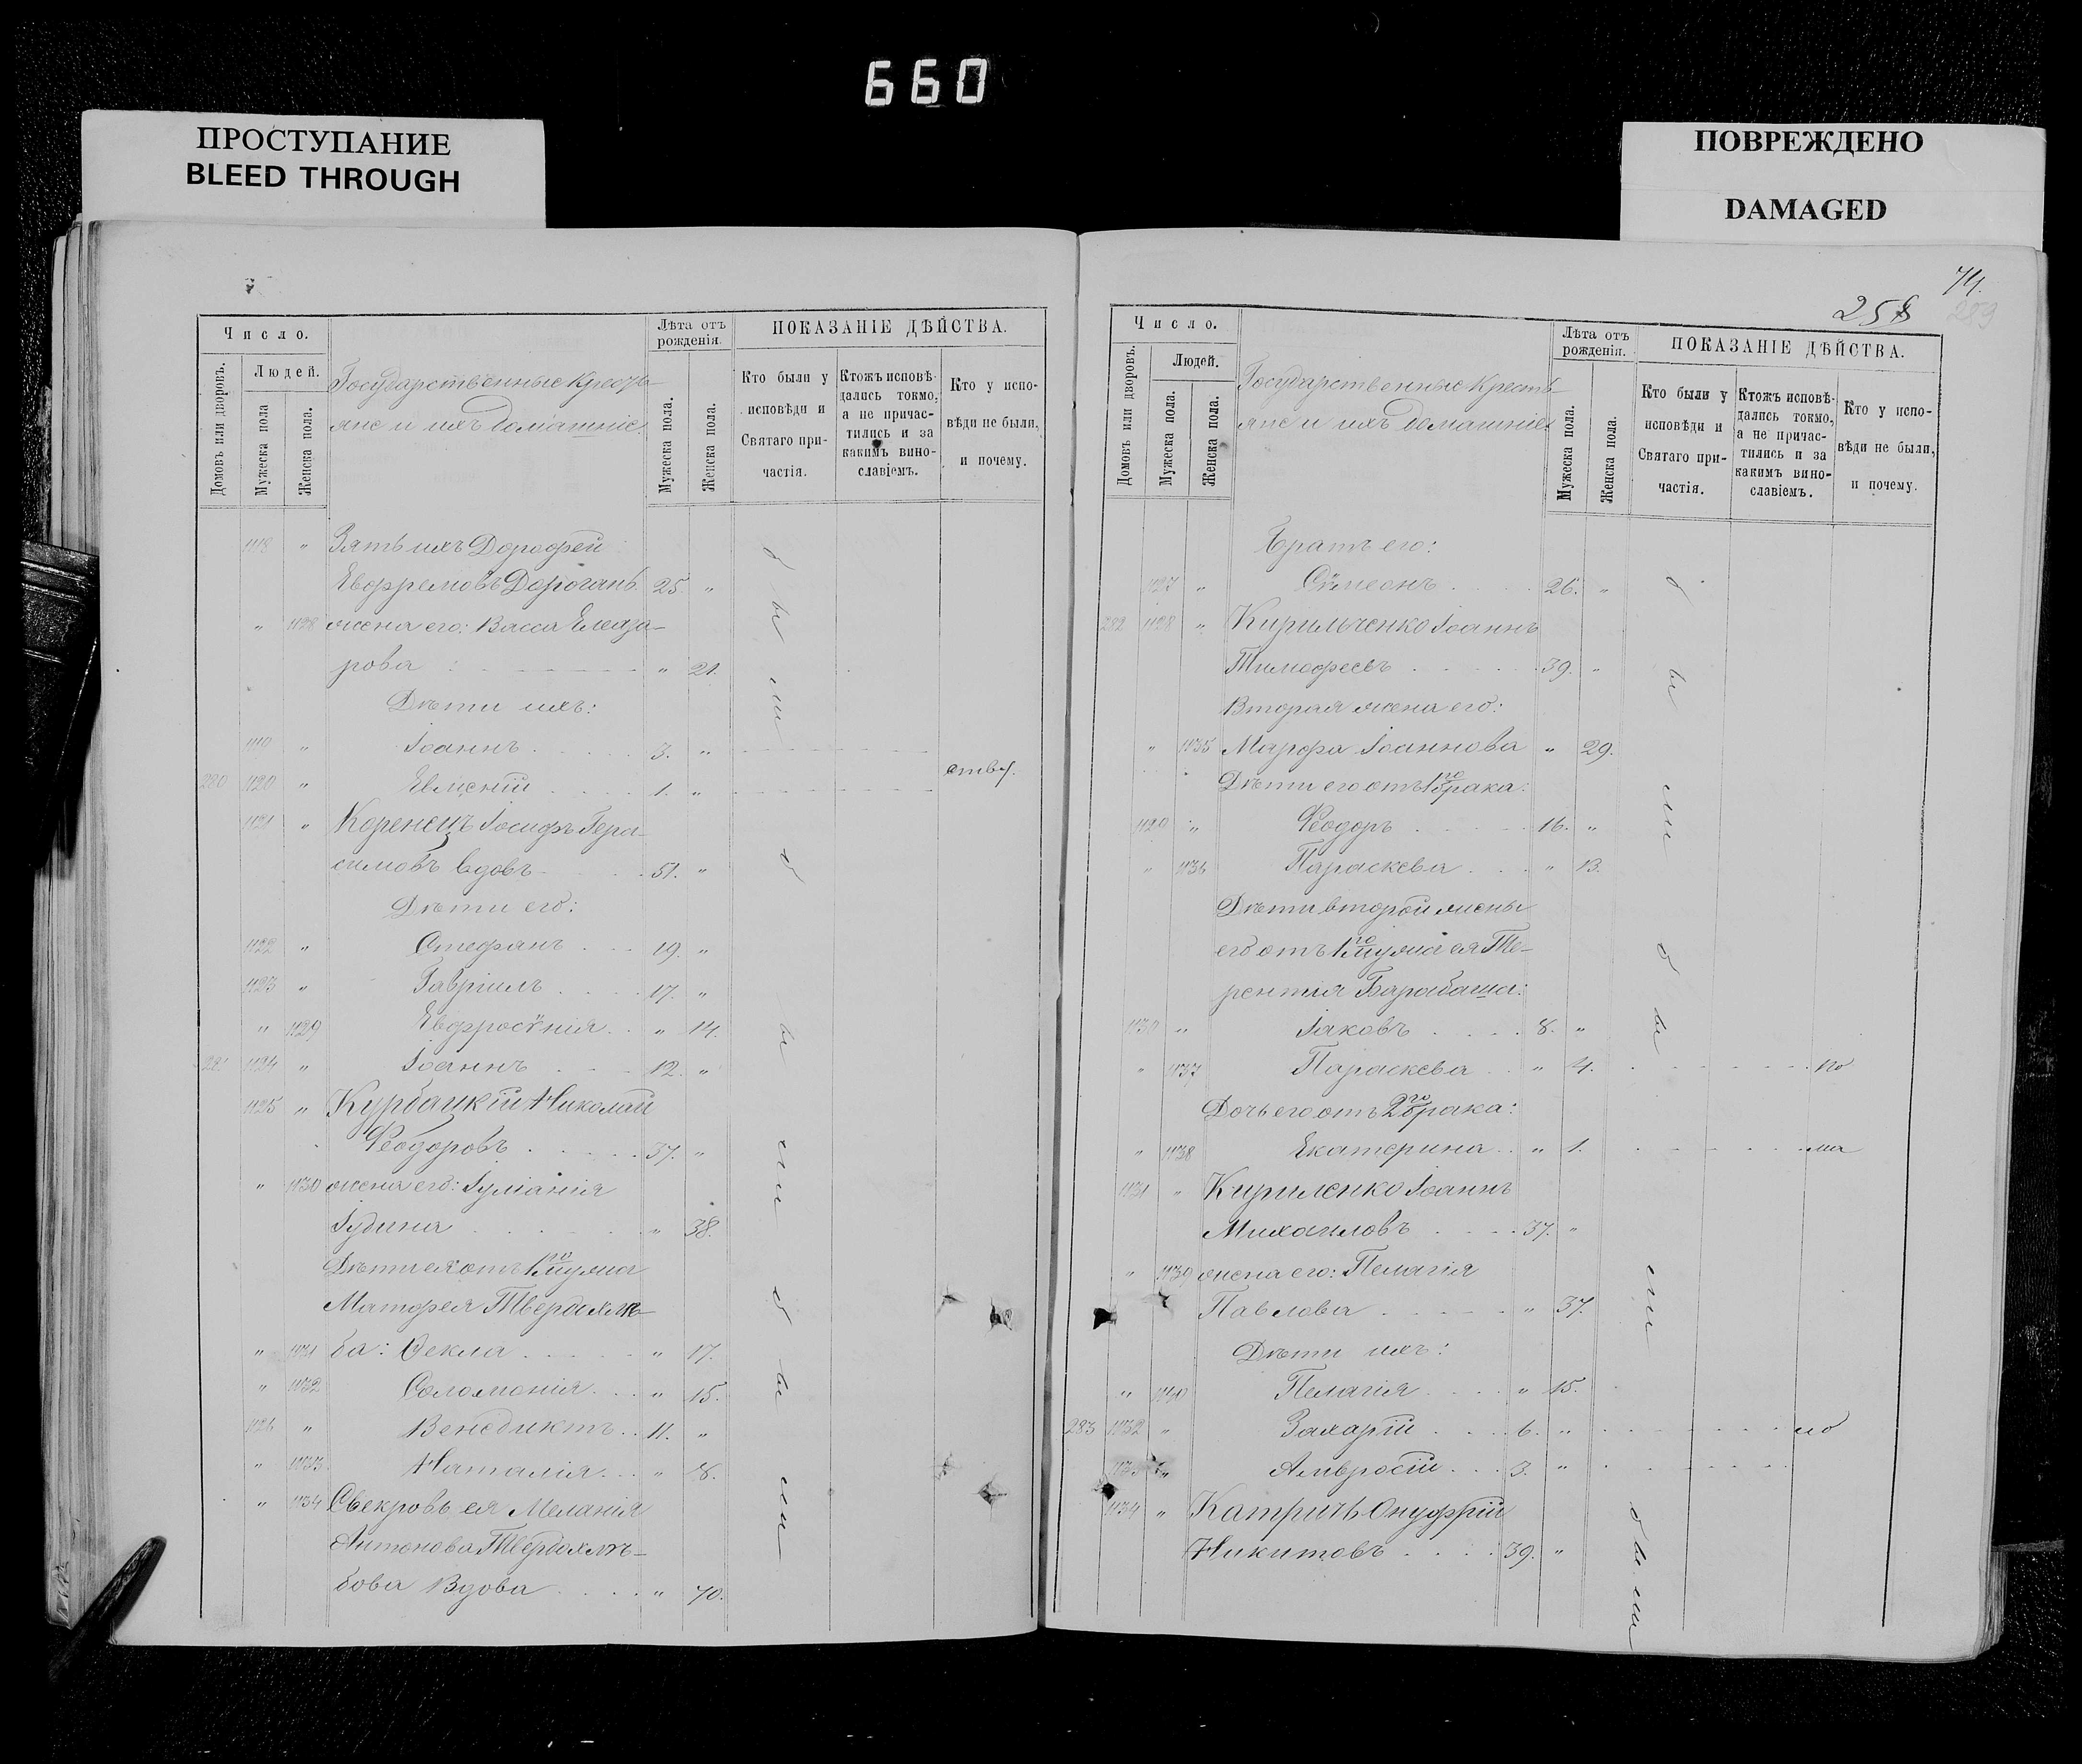 660
ПРОСТУПАНИЕ
BLEED THROUGH
ПОВРЕЖДЕНО
DAMAGED
Число.
Лѣта отъ рожденія.
ПОКАЗАНІЕ ДѢЙСТВА.
Домовъ или дворовъ.
Людей.
Мужеска пола
Женска пола.
Государственные Кресть-
яне и ихъ домашніе.
Мужеска пола.
Женска пола.
Кто были у исповѣди и Святаго причастія.
Ктожъ исповѣдались токмо, а не причастились и за какимъ винославіемъ.
Кто у исповѣди не были, и почему.
" Зять ихъ Дорофей
Евфремовъ Дорогань. 25. "
" 1128 жена его: Васса Елеаза-
рова " 21.
Дѣти ихъ:
" Іоаннъ 3. "
280 1120 " Евменій 1. "
1121 " Коренецъ Іосифъ Гера-
симовъ вдовъ 51. "
Дѣти его:
1122 " Стефанъ 19. "
1123 " Гавріилъ 17. "
" 1129 Евфросинія " 14.
1124 " Іоаннъ 12. "
1125 " Курбацкій Николай
Ѳеодоровъ 37. "
" 1130 жена его: Іуліанія
Іудина " 38.
Дѣти ея отъ 1го мужа
Матфея Твердохлѣ-
" 1131 ба: Ѳекла " 17.
" 1132 Соломонія " 15.
1126 " Венедиктъ 11. "
" 1133 Наталія " 8.
" 1134 Свекровь ея Меланія
Антонова Твердохлѣ-
бова Вдова " 70.
были
были
были
74.
258
Число.
Лѣта отъ рожденія.
ПОКАЗАНІЕ ДѢЙСТВА.
Домовъ или дворовъ.
Людей.
Мужеска пола.
Женска пола.
Государственные Кресть-
яне и ихъ домашніе
Мужеска пола.
Женска пола.
Кто были у исповѣди и Святаго причастія.
Ктожъ исповѣдались токмо, а не причастились и за какимъ винославіемъ.
Кто у исповѣди не были, и почему.
Братъ его:
1127 " Сѵмеонъ 26. "
282 1128 " Кирильченко Іоаннъ
Тимофеевъ 39. "
Вторая жена его:
" 1135 Марфа Іоаннова " 29.
Дѣти его отъ 1го брака:
1129 " Ѳеодоръ 16. "
" 1136 Параскева " 13.
Дѣти второй жены
его отъ 1го мужа ея Те-
рентія Барабаша:
1130 " Іаковъ 8. "
" 1137 Параскева " 4. по
Дочь его отъ 2го брака:
" 1138 Екатерина " 1. ма
1131 " Кириленко Іоаннъ
Михаиловъ 37. "
" 1139 жена его: Пелагія
Павлова " 37.
Дѣти ихъ:
" 1140 Пелагія " 15.
283 1132 " Захарій 6. "
1133 " Амвросій 3. "
1134 " Катричъ Онуфрій
Никитовъ 39. "
были
были
были